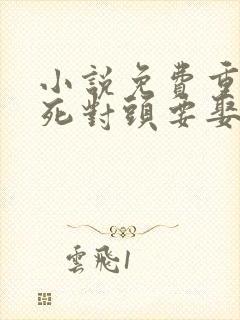 小說免費重
死對頭要娶
雲飛1